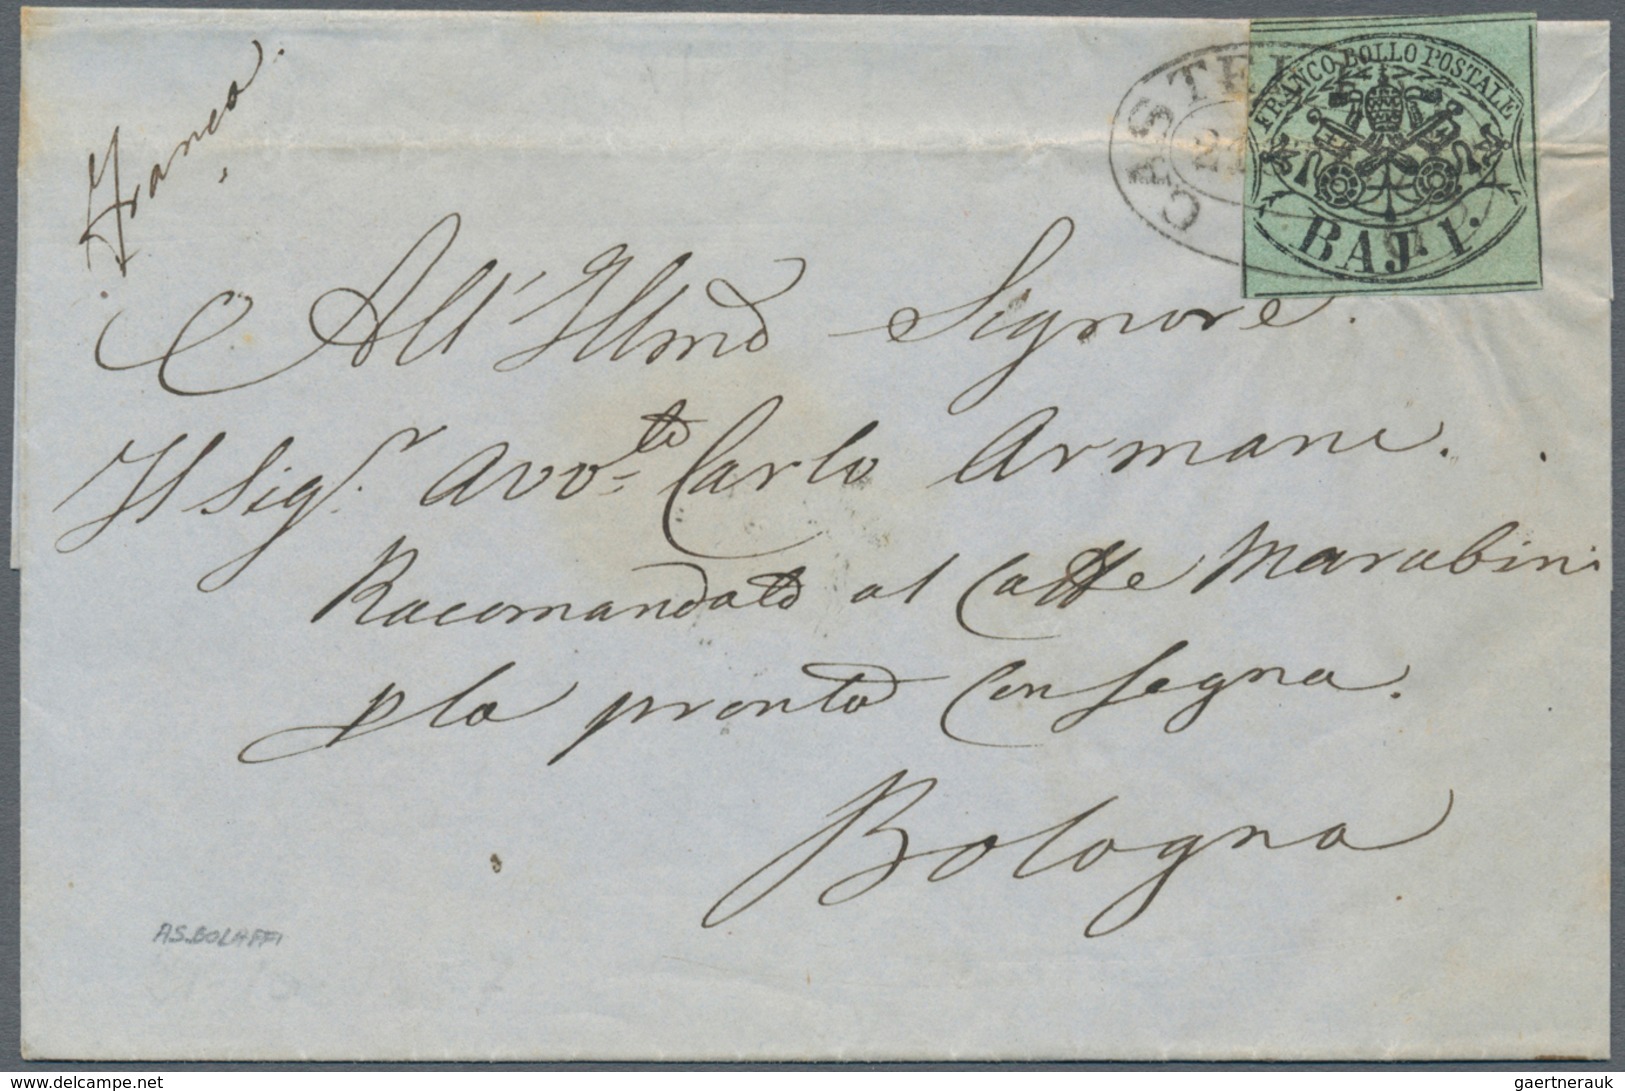 Franca.
CASTEL
FRANCO BOLLO POSTALE
BAJ. 1.
All' Illmo Signore.
Il Sig.r Avv.to Carlo Armani.
Racomandato al Caffe Marabini
p la pronta Consegna.
Bologna
A.S. BOLAFFI
www.delcampe.net
gaertnerauk